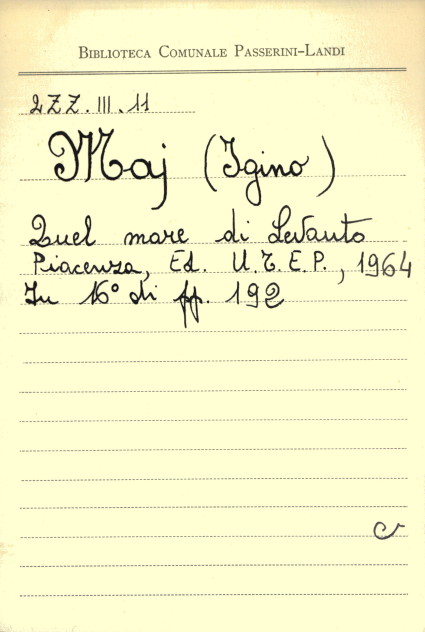 BIBLIOTECA COMUNALE PASSERINI-LANDI
2ZZ.III.11
Maj (Igino)
Quel mare di Levanto
Piacenza, Ed. U.T.E.P., 1964
In 16° di pp. 192